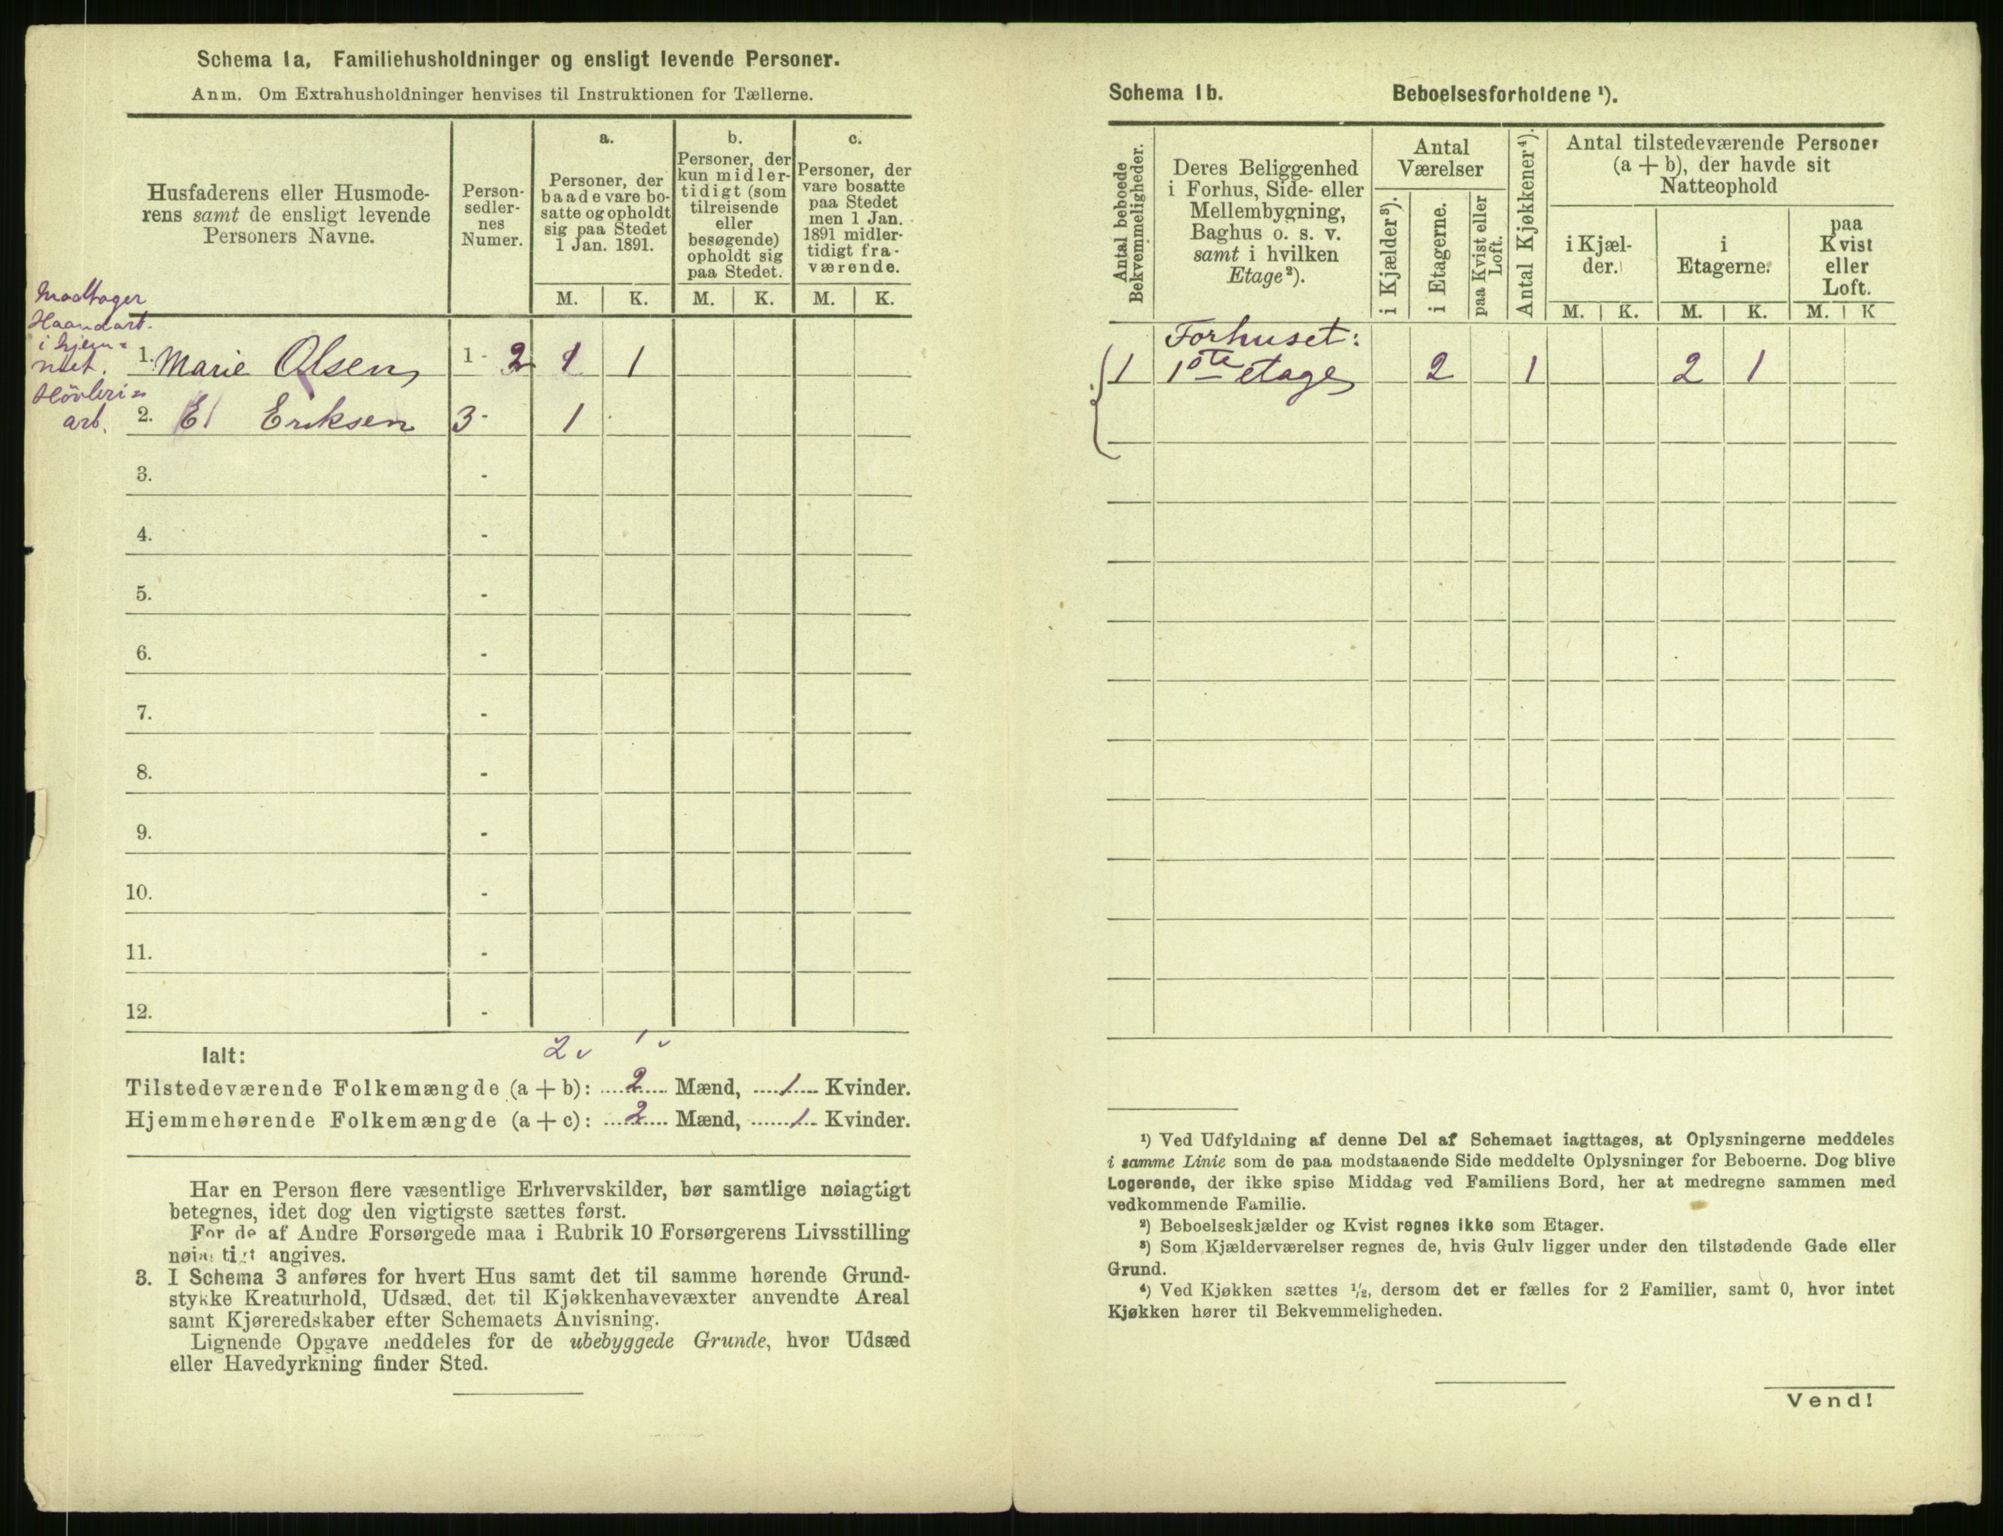 Schema 1a, Familiehusholdninger og ensligt levende Personer.
Anm. Om Extrahusholdninger henvises til Instruktionen for Tællerne.
Husfaderens eller Husmode-
rens samt de ensligt levende
Personers Navne.
Person-
sedler-
nes
Numer.
a.
Personer, der
baade vare bo-
satte og opholdt
sig paa Stedet
1 Jan. 1891.
b.
Personer, der
kun midler-
tidigt (som
tilreisende
eller
besøgende)
opholdt sig
paa Stedet.
c.
Personer, der
vare bosatte
paa Stedet
men 1 Jan.
1891 midler-
tidigt fra-
værende.
M. K. M. K. M. K.
Modtager
Haandart.
i hjem=
met.
1. Marie Olsen 1 - 2 1 1
Høvleri=
arb.
2. E Eriksen 3 - 1
3. -
4. -
5. -
6. -
7. -
8. -
9. -
10. -
11. -
12. -
2 1
Ialt:
Tilstedeværende Folkemængde (a + b): 2 Mænd, 1 Kvinder.
Hjemmehørende Folkemængde (a + c): 2 Mænd, 1 Kvinder.
Har en Person flere væsentlige Erhvervskilder, bør samtlige nøiagtigt
betegnes, idet dog den vigtigste sættes først.
For de af Andre Forsørgede maa i Rubrik 10 Forsørgerens Livsstilling
nøiagtigt angives.
3. I Schema 3 anføres for hvert Hus samt det til samme hørende Grund-
stykke Kreaturhold, Udsæd, det til Kjøkkenhavevæxter anvendte Areal
samt Kjøreredskaber efter Schemaets Anvisning.
Lignende Opgave meddeles for de ubebyggede Grunde, hvor Udsæd
eller Havedyrkning finder Sted.
Schema 1b. Beboelsesforholdene ¹).
Antal beboede
Bekvemmeligheder.
Deres Beliggenhed
i Forhus, Side- eller
Mellembygning,
Baghus o. s. v.
samt i hvilken
Etage²).
Antal
Værelser
i Kjælder³).
i Etagerne.
paa Kvist eller
Loft.
Antal Kjøkkener⁴).
Antal tilstedeværende Personer
(a + b), der havde sit
Natteophold
i Kjæl-
der.
i
Etagerne.
paa
Kvist
eller
Loft.
M. K. M. K. M. K
Forhuset:
1 1ste etage 2 1 2 1
¹) Ved Udfyldning af denne Del af Schemaet iagttages, at Oplysningerne meddeles
i samme Linie som de paa modstaaende Side meddelte Oplysninger for Beboerne. Dog blive
Logerende, der ikke spise Middag ved Familiens Bord, her at medregne sammen med
vedkommende Familie.
²) Beboelseskjælder og Kvist regnes ikke som Etager.
³) Som Kjælderværelser regnes de, hvis Gulv ligger under den tilstødende Gade eller
Grund.
⁴) Ved Kjøkken sættes ½, dersom det er fælles for 2 Familier, samt 0, hvor intet
Kjøkken hører til Bekvemmeligheden.
Vend!